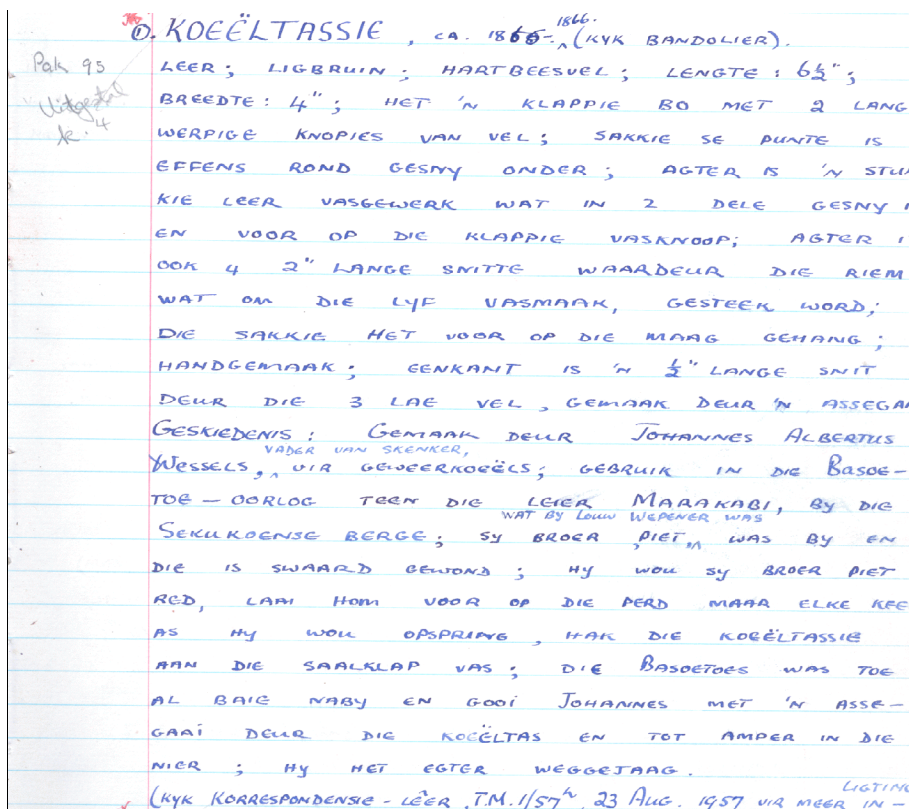 ①. KOEËLTASSIE, CA. 1865-1866. (KYK BANDOLIER).
Pak 95
Uitgestal
k. 4
LEER; LIGBRUIN; HARTBEESVEL; LENGTE: 6½";
BREEDTE: 4"; HET 'N KLAPPIE BO MET 2 LANG
WERPIGE KNOPIES VAN VEL; SAKKIE SE PUNTE IS
EFFENS ROND GESNY ONDER; AGTER IS 'N STUK
KIE LEER VASGEWERK WAT IN 2 DELE GESNY I
EN VOOR OP DIE KLAPPIE VASKNOOP; AGTER I
OOK 4 2" LANGE SNITTE WAARDEUR DIE RIEM
WAT OM DIE LYF VASMAAK, GESTEEK WORD;
DIE SAKKIE HET VOOR OP DIE MAAG GEHANG;
HANDGEMAAK; EENKANT IS 'N ½" LANGE SNIT
DEUR DIE 3 LAE VEL, GEMAAK DEUR 'N ASSEGAA
GESKIEDENIS: GEMAAK DEUR JOHANNES ALBERTUS
WESSELS, VADER VAN SKENKER, VIR GEWEERKOEËLS; GEBRUIK IN DIE BASOE-
TOE-OORLOG TEEN DIE LEIER MARAKABI, BY DIE
SEKUKOENSE BERGE; SY BROER PIET, WAT BY LOUW WEPENER WAS WAS BY EN
DIE IS SWAARD GEWOND; HY WOU SY BROER PIET
RED, LAAI HOM VOOR OP DIE PERD MAAR ELKE KEE
AS HY WOU OPSPRING, HAK DIE KOEËLTASSIE
AAN DIE SAALKLAP VAS; DIE BASOETOES WAS TOE
AL BAIE NABY EN GOOI JOHANNES MET 'N ASSE-
GAAI DEUR DIE KOEËLTAS EN TOT AMPER IN DIE
NIER; HY HET EGTER WEGGEJAAG.
(KYK KORRESPONDENSIE-LÊER, T.M. 1/57, 23 AUG. 1957 VIR MEER IN-
LIGTING